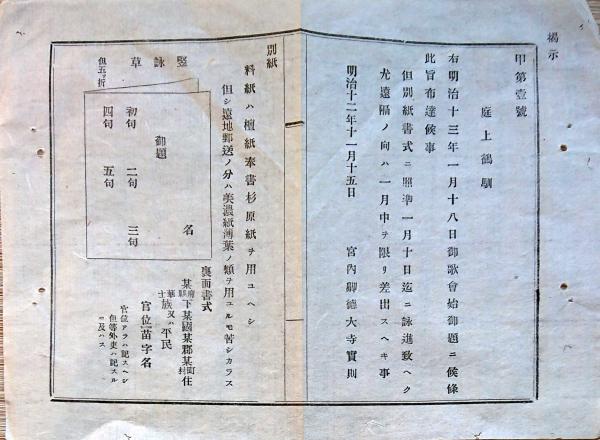 揭示
甲第壹號
庭上鶴馴
右明治十三年一月十八日御歌會始御題ニ候條
此旨布達候事
但別紙書式ニ照準一月十日迄ニ詠進致ヘク
尤遠隔ノ向ハ一月中ヲ限リ差出スヘキ事
明治十二年十一月十五日 宮內卿德大寺實則
別紙
料紙ハ檀紙奉書杉原紙ヲ用ユヘシ
但シ遠地郵送ノ分ハ美濃紙薄葉ノ類ヲ用ユルモ苦シカラス
竪詠草
但五ッ折
名
御題
初句 二句 三句
四句 五句
裏面書式
某府縣下某國某郡某町村住
華士族又ハ平民
官位苗字名
官位アラハ記スヘシ
但等外吏ハ記スル
ニ及ハス